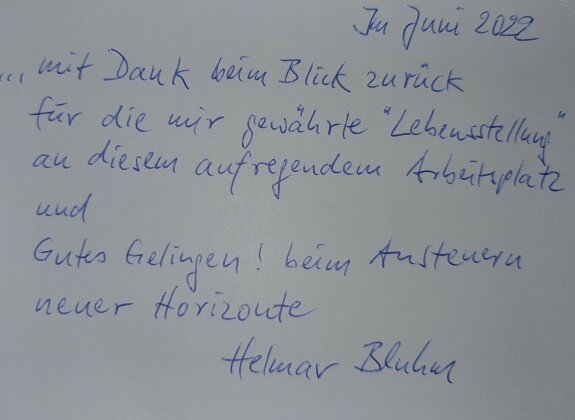 Im Juni 2022
... mit Dank beim Blick zurück
für die mir gewährte "Lebensstellung"
an diesem aufregendem Arbeitsplatz
und
Gutes Gelingen! beim Ansteuern
neuer Horizonte
Helmar Bluhm